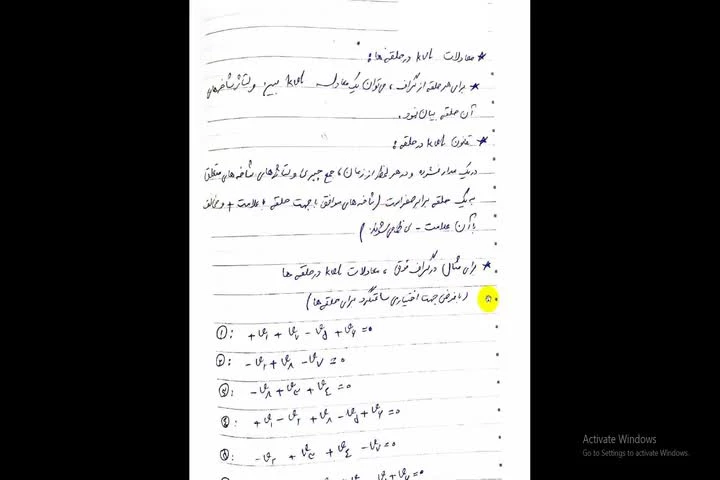 * معادلات kvl در حلقه ها:
* برای هر حلقه از گراف، می‌توان یک معادله kvl بین ولتاژ شاخه‌های
آن حلقه بیان نمود.
* قانون kvl در حلقه:
در یک مدار فشرده و در هر لحظه از زمان، جمع جبری ولتاژهای شاخه های متعلق
به یک حلقه برابر صفر است (شاخه های موافق با جهت حلقه با علامت + و مخالف
با آن علامت - می شوند)
* برای مثال در گراف فوق، معادلات kvl در حلقه ها
(با فرض جهت اختیاری ساعتگرد برای حلقه ها)
①: +v۱ + v۷ - v۵ + v۶ = ۰
②: -v۲ + v۸ - v۷ = ۰
③: -v۸ + v۳ + v۴ = ۰
④: +v۱ - v۲ + v۸ - v۵ + v۶ = ۰
⑤: -v۲ + v۳ + v۴ - v۷ = ۰
Activate Windows
Go to Settings to activate Windows.